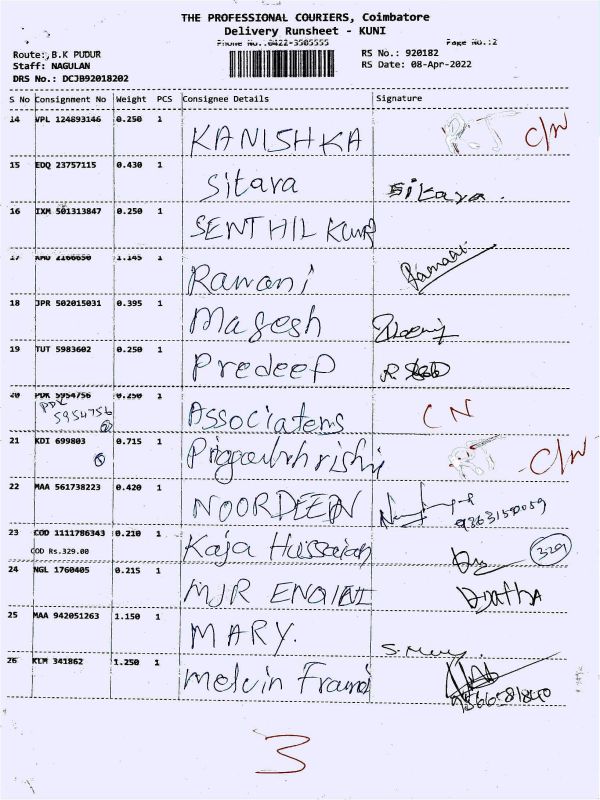 THE PROFESSIONAL COURIERS, Coimbatore
Delivery Runsheet - KUNI
Phone No.:0422-3505555 Page No.:2
Route: B.K PUDUR RS No.: 920182
Staff: NAGULAN RS Date: 08-Apr-2022
DRS No.: DCJB92018202
S No Consignment No Weight PCS Consignee Details Signature
14 VPL 124893146 0.250 1 KANISHKA C/N
15 EDQ 23757115 0.430 1 Sitara Sikara.
16 IXM 501313847 0.250 1 SENTHIL KUMR
17 2166650 1.145 1 Ramani
18 JPR 502015031 0.395 1 Magesh
19 TUT 5983602 0.250 1 Predeep
20 PDK 5954756 0.250 1 Associatens CN
5954756
21 KDI 699803 0.715 1 C/N
22 MAA 561738223 0.420 1 NOORDEEN
23 COD 1111786343 0.210 1 Kaja Hussaian
COD Rs.329.00 329
24 NGL 1760405 0.215 1 MJR
25 MAA 942051263 1.150 1 MARY. S. Mary.
26 KLM 341862 1.250 1 Melvin
3